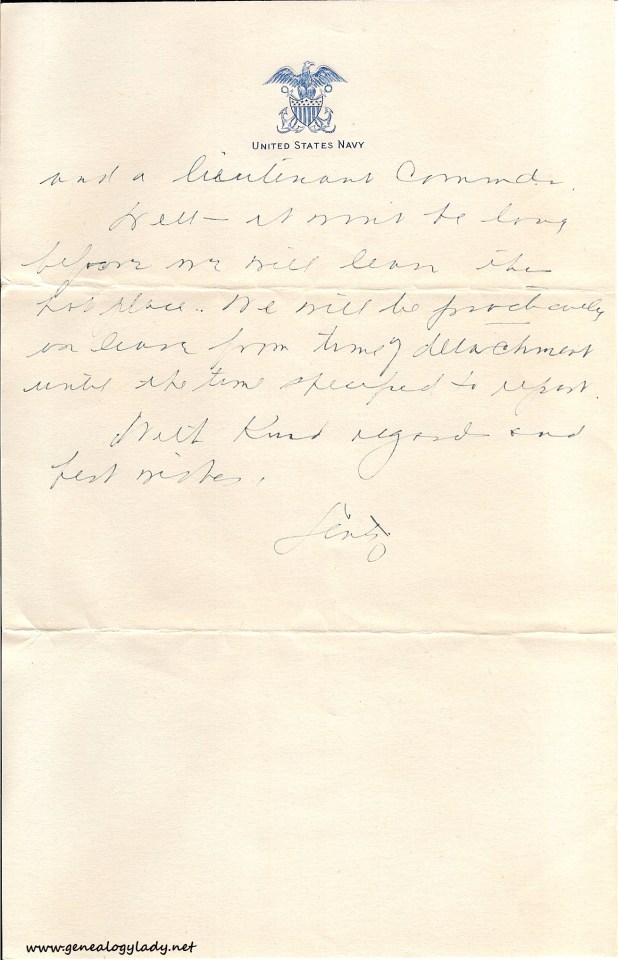 UNITED STATES NAVY
and a lieutenant Commdr.
Well — it won't be long
before we will leave this
hot place. We will be practically
on leave from time of detachment
until the time specified to report.
With Kind regards and
best wishes.
www.genealogylady.net